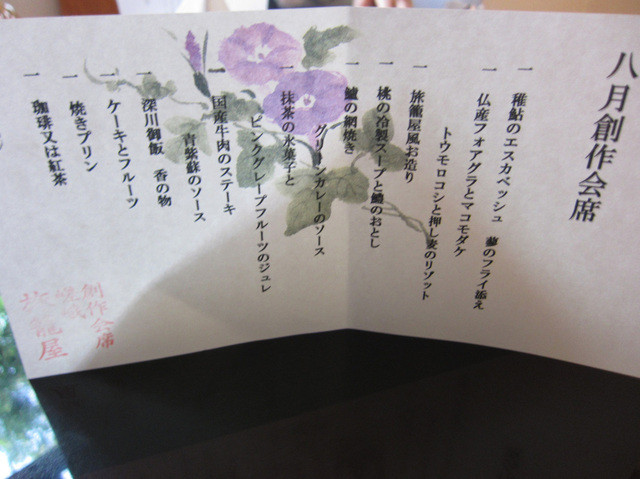 八月創作会席
一 稚鮎のエスカベッシュ 蓼のフライ添え
一 仏産フォアグラとマコモダケ
トウモロコシと押し麦のリゾット
一 旅籠屋風お造り
一 桃の冷製スープと鱧のおとし
一 鱸の網焼き
グリーンカレーのソース
一 抹茶の氷菓子と
ピンクグレープフルーツのジュレ
一 国産牛肉のステーキ
青紫蘇のソース
一 深川御飯 香の物
一 ケーキとフルーツ
一 焼きプリン
一 珈琲又は紅茶
創作会席
旅籠屋